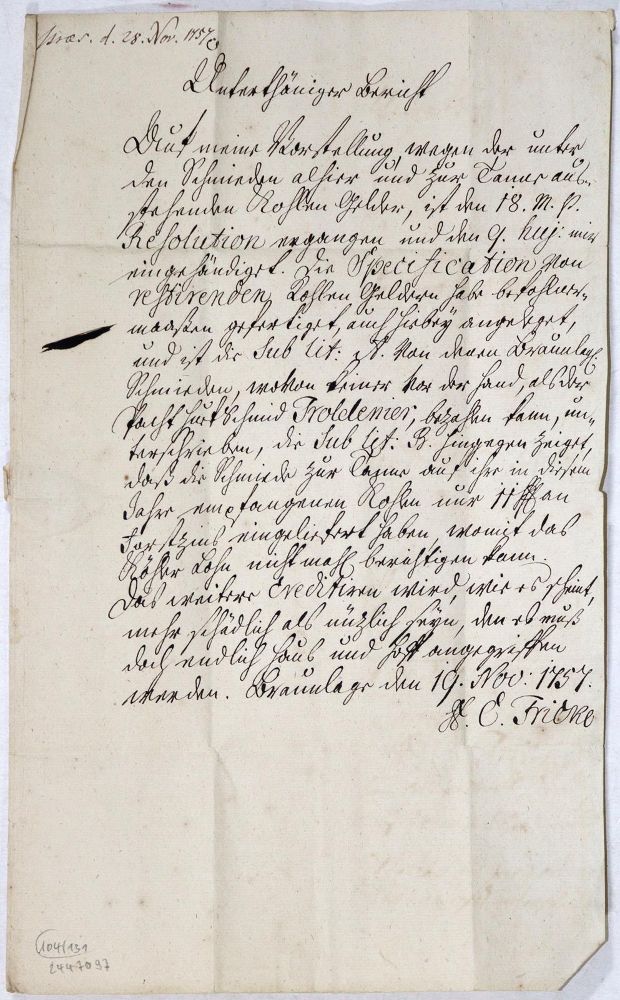 præs. d. 28. Nov. 1757
Unterthäniger Bericht
Auf meine Vorstellung, wegen der unter
den Schmieden alhier und zur Tanne aus-
stehenden Kohlen Gelder, ist den 18. M. p.
Resolution ergangen und den 9. huj: mir
eingehändiget. Die Specification von
restirenden Kohlen Geldern habe befohlner-
maaßen gefertiget, auch hiebey angeleget,
und ist die Sub lit: A. von denen Braunlag.
Schmieden, wovon keiner vor der Hand, als der
Pacht Schmid Troldenier, bezahlen kann, un-
terschrieben, die Sub lit: B. hingegen zeiget,
daß die Schmiede zur Tanne auf ihre in diesem
Jahre empfangenen Kohlen nur 11 an
Forstzins eingeliefert haben, womit das
Köhler Lohn nicht mahl berichtigen kann.
Das weitere Creditiren wird, wie es scheint,
mehr schädlich als nützlich seyn, den es muß
doch endlich Haus und Hoff angegriffen
werden. Braunlage den 19. Nov: 1757.
E. Fricke
104/131
2447097